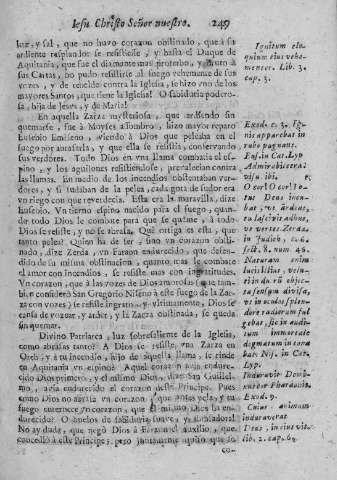 Iesu Christo Señor nuestro. 249
luz, y sal, que no huvo corazon obstinado, que à su
ardiente resplandor se resistiesse, y hasta el Duque de
Aquitania, que fue el diamante mas protervo, y duro à
sus Cartas, no pudo resistirse al fuego vehemente de sus
vozes, y de rebelde contra la Iglesia, se hizo vno de los
mayores Santos, que tiene la Iglesia! O sabiduria poderosa,
hija de Jesus, y de Maria!
En aquella Zarza mysteriosa, que ardiendo sin
quemarse, fue à Moyses assombro, hizo mayor reparo
Eusebio Emisseno, viendo à Dios que peleaba en el
fuego por abrasarla, y que ella se resistia, conservando
sus verdores. Todo Dios en vna llama combatia el espino,
y los aguijones resistiendose, prevalecian contra
las llamas. En medio de los incendios ostentaban verdores,
y si sudaban de la pelea, cada gota de sudor era
vn riego con que reverdecia. Esta era la maravilla, dize
Eusebio. Vn tierno espino nacido para el fuego, quando
todo Dios le combate para que se queme, à todo
Dios se resiste, y no se abrasa. Què ortiga es esta, que
tanto pelea? Quien ha de ser, sino vn corazon obstinado,
dize Zerda, vn Faraon endurecido, que defendido
de su misma obstinacion, quanto mas le combate
el amor con incendios, se resiste mas con ingratitudes.
Vn corazon, que à las vozes de Dios amorosas (que tambien
consideró San Gregorio Niseno à este fuego de la Zarza
con vozes) se resiste ingrato, y vltimamente, Dios se
cansa de vozear, y arder, y la Zarza obstinada, se queda
sin quemar.
Divino Patriarca, luz sobresaliente de la Iglesia,
como abrasas tanto? A Dios se resiste vna Zarza en
Oreb, y à tu incendio, hijo de aquella llama, se rinde
tu Aquitania vn espino? Aquel corazon avia endurecido
Dios primero, y el mismo Dios, dize San Guillelmo,
avia endurecido el corazon deste Principe. Pues
como Dios no abrasa vn corazon, que antes yela, y tu
fuego enternece vn corazon, que el mismo Dios ha endurecido?
O anzuelos de sabiduria suave, y
No ay duda, que negó Dios à Faraon el auxilio, que
concedió à este Principe; pero juntamente quiso que se
co-
Ignitum eloquium
eius vehementer. Lib. 3.
cap. 3.
Exod. c. 3. Ignis
apparebat in
rubo pugnans.
Eus. in Cat. Lyp
Admirabilis erat
visu ibi.
O cer! O cer! Totus
Deus incumbas,
vt ardeat,
tu lascivis adhuc,
vt vertes. Zerda.
in Judith, c. 6.
sect. 8. num. 42.
Naturam
Exod. 9.
Cuius animam
induraverat
Deus, in eius vit.
lib. 2. cap. 64.